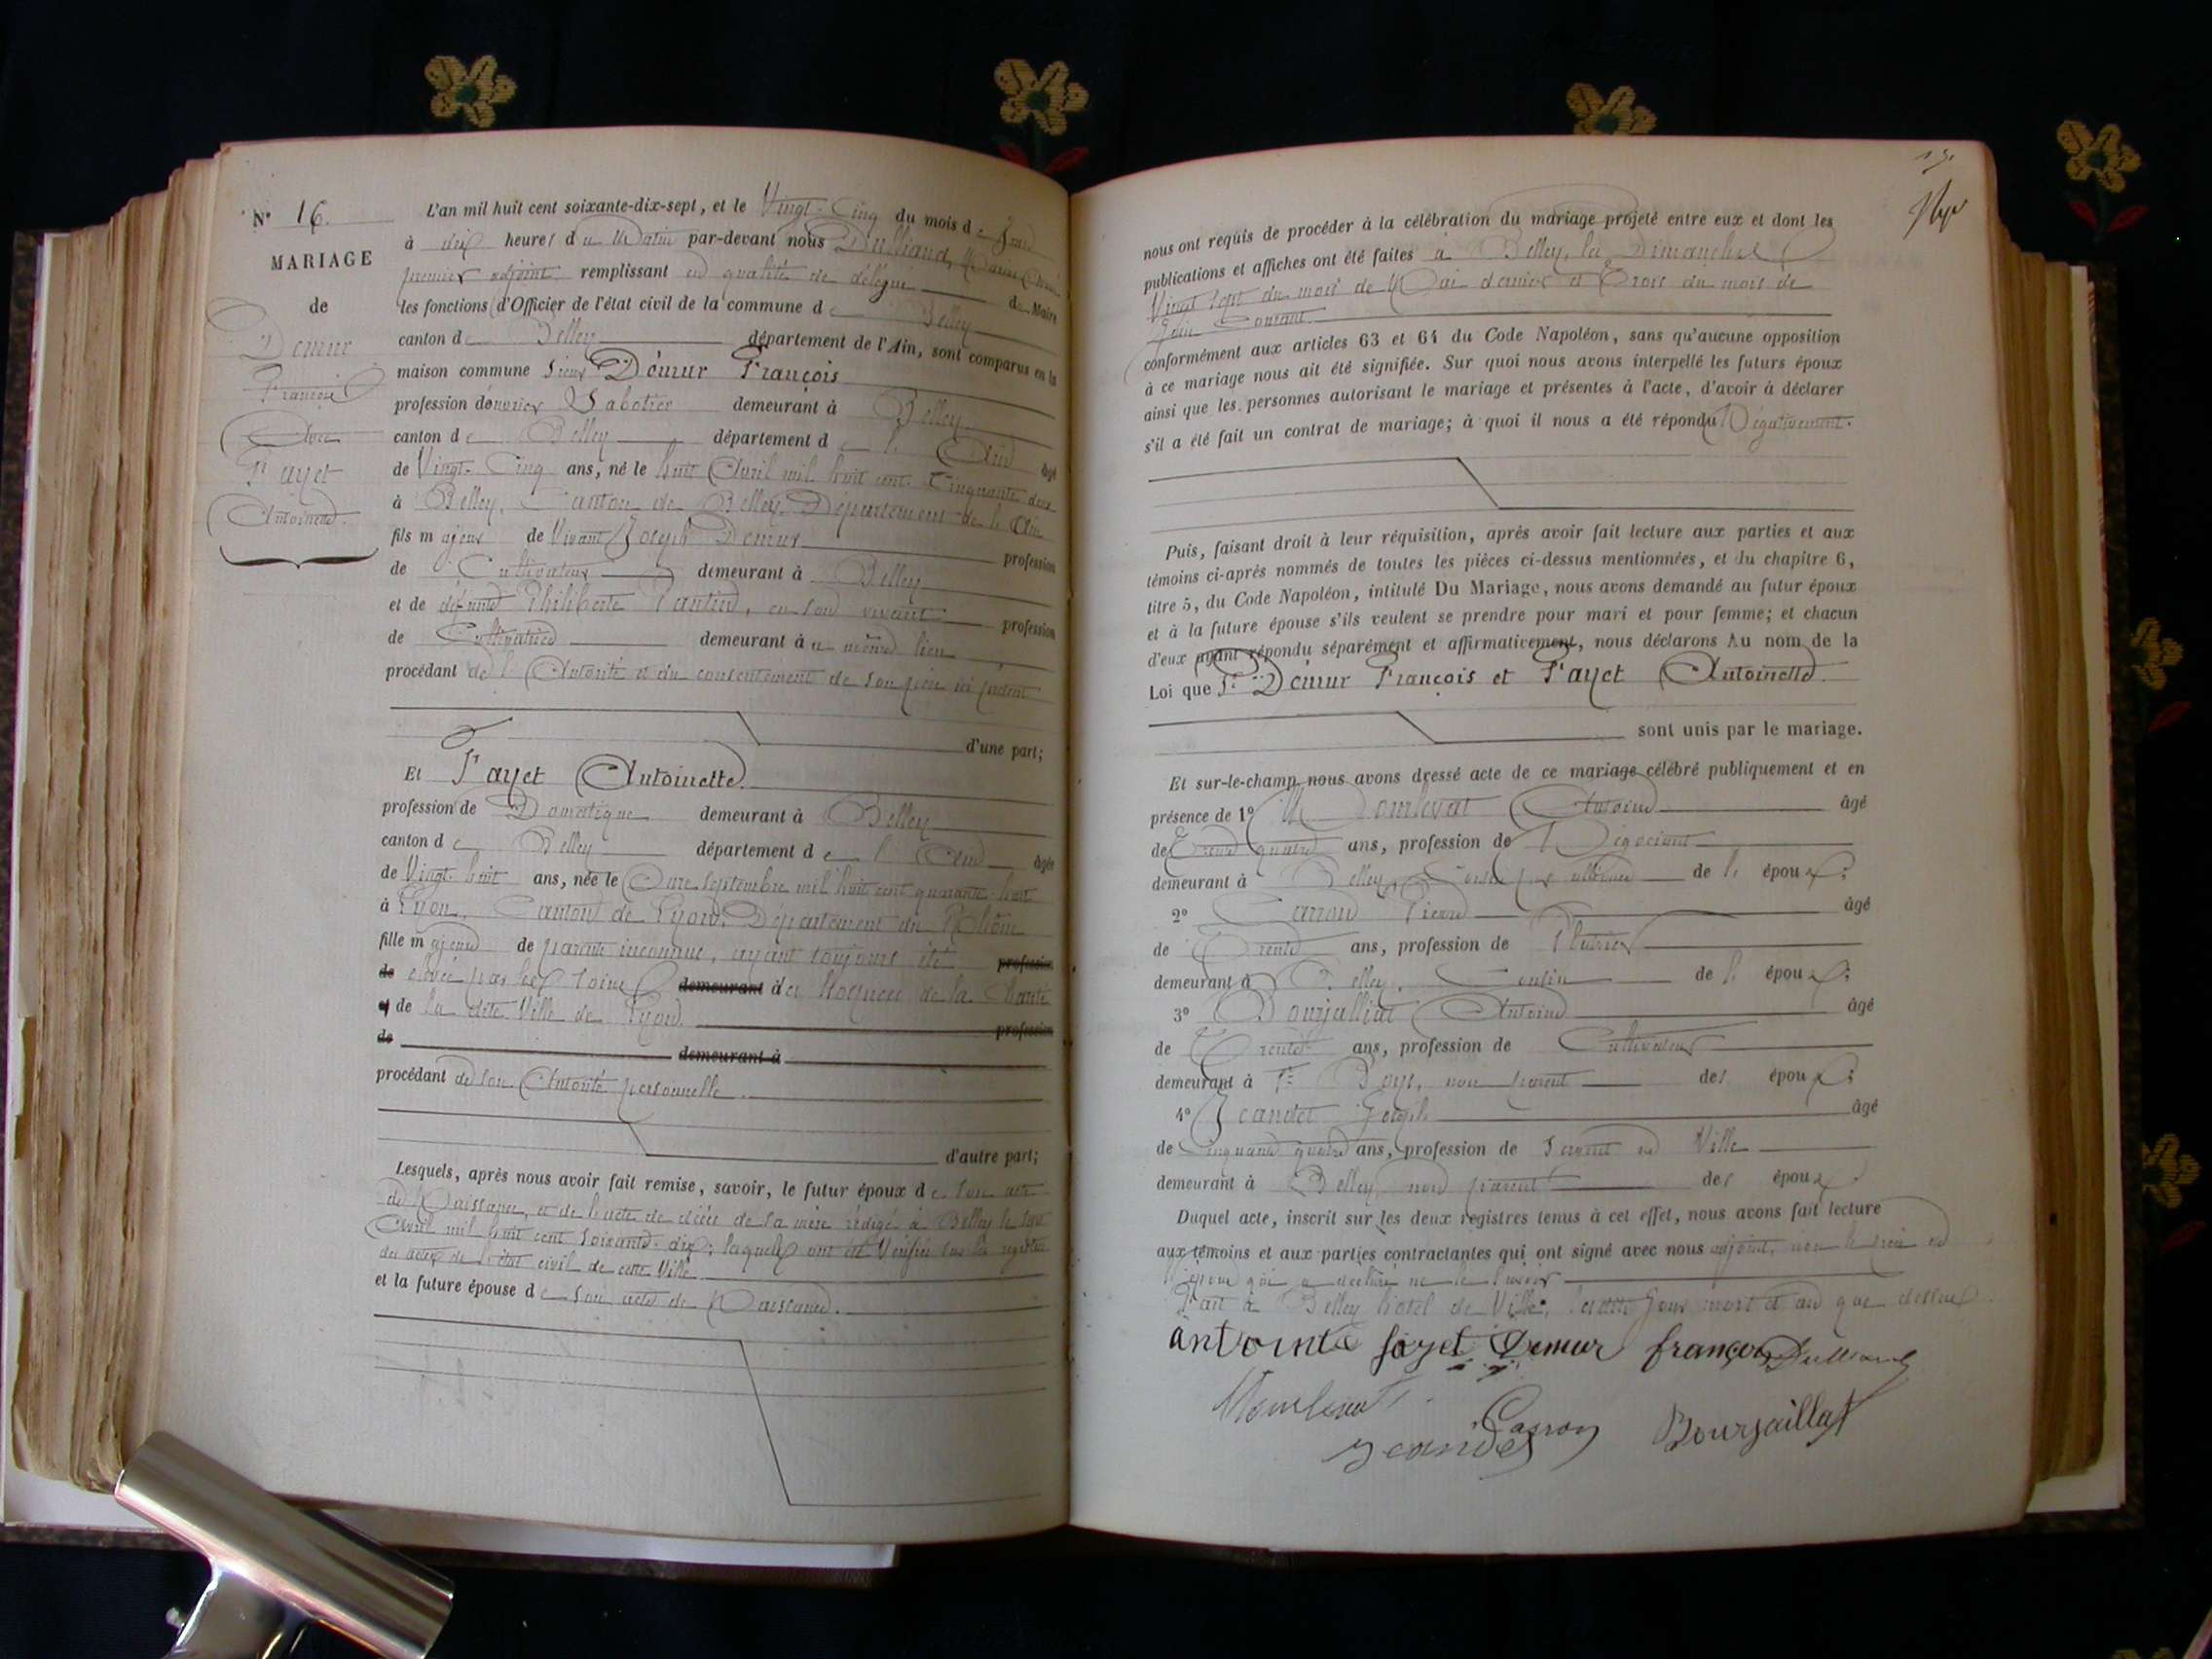 N° 16.
MARIAGE
de
Demur
François
Avec
Fayet
Antoinette.
L'an mil huit cent soixante-dix-sept, et le Vingt-Cinq du mois de Juin
à dix heures du Matin par-devant nous Dulliand, Marie
premier adjoint remplissant en qualité de délégué du Maire
les fonctions d'Officier de l'état civil de la commune de Belley
canton de Belley département de l'Ain, sont comparus en la
maison commune Sieur Démur François
profession d'ouvrier Sabotier demeurant à Belley
canton de Belley département de l'Ain âgé
de Vingt-Cinq ans, né le huit Avril mil huit cent cinquante deux
à Belley, Canton de Belley, Département de l'Ain
fils majeur de Vivant Joseph Demur profession
de Cultivateur demeurant à Belley
et de défunte Philiberte Pantin, en son vivant profession
de Cultivatrice demeurant au même lieu
procédant de l'Autorité et du consentement de son père ici présent
d'une part;
Et Fayet Antoinette.
profession de Domestique demeurant à Belley
canton de Belley département de l'Ain âgée
de Vingt-huit ans, née le Onze Septembre mil huit cent quarante-huit
à Lyon, Canton de Lyon, Département du Rhône
fille majeure de parents inconnus, ayant toujours été profession
de élevée par les soins demeurant à des hospices de la Charité
et de la dite Ville de Lyon. profession
de demeurant à
procédant de son Autorité personnelle.
d'autre part;
Lesquels, après nous avoir fait remise, savoir, le futur époux de son acte
de Naissance, et de l'acte de décès de sa mère rédigé à Belley le
Avril mil huit cent soixante-dix; lesquels ont été Vérifiés sur les registres
des actes de l'état civil de cette Ville
et la future épouse de son acte de Naissance.
nous ont requis de procéder à la célébration du mariage projeté entre eux et dont les
publications et affiches ont été faites à Belley, les Dimanches
Vingt Sept du mois de Mai dernier et Trois du mois de
Juin Courant
conformément aux articles 63 et 64 du Code Napoléon, sans qu'aucune opposition
à ce mariage nous ait été signifiée. Sur quoi nous avons interpellé les futurs époux
ainsi que les personnes autorisant le mariage et présentes à l'acte, d'avoir à déclarer
s'il a été fait un contrat de mariage; à quoi il nous a été répondu Négativement.
Puis, faisant droit à leur réquisition, après avoir fait lecture aux parties et aux
témoins ci-après nommés de toutes les pièces ci-dessus mentionnées, et du chapitre 6,
titre 5, du Code Napoléon, intitulé Du Mariage, nous avons demandé au futur époux
et à la future épouse s'ils veulent se prendre pour mari et pour femme; et chacun
d'eux ayant répondu séparément et affirmativement, nous déclarons Au nom de la
Loi que Sr Démur François et Fayet Antoinette.
sont unis par le mariage.
Et sur-le-champ nous avons dressé acte de ce mariage célébré publiquement et en
présence de 1° Antoine âgé
de Trente quatre ans, profession de Négociant
demeurant à Belley, Cousin par alliance de l'époux;
2° Carron Pierre âgé
de Trente ans, profession de Plâtrier
demeurant à Belley, Cousin de l'époux;
3° Bourjaillat Antoine âgé
de Trente ans, profession de Cultivateur
demeurant à St Boys, non parent des époux;
4° Jeandet Joseph âgé
de Cinquante quatre ans, profession de Sergent de Ville
demeurant à Belley non parent des époux.
Duquel acte, inscrit sur les deux registres tenus à cet effet, nous avons fait lecture
aux témoins et aux parties contractantes qui ont signé avec nous adjoint, non le père de
l'époux qui a déclaré ne le savoir
Fait à Belley hôtel de Ville, lesdits jour mois et an que dessus
antointe fayet Demur françois Dulliand
Carron Bourjaillat
Jeandet